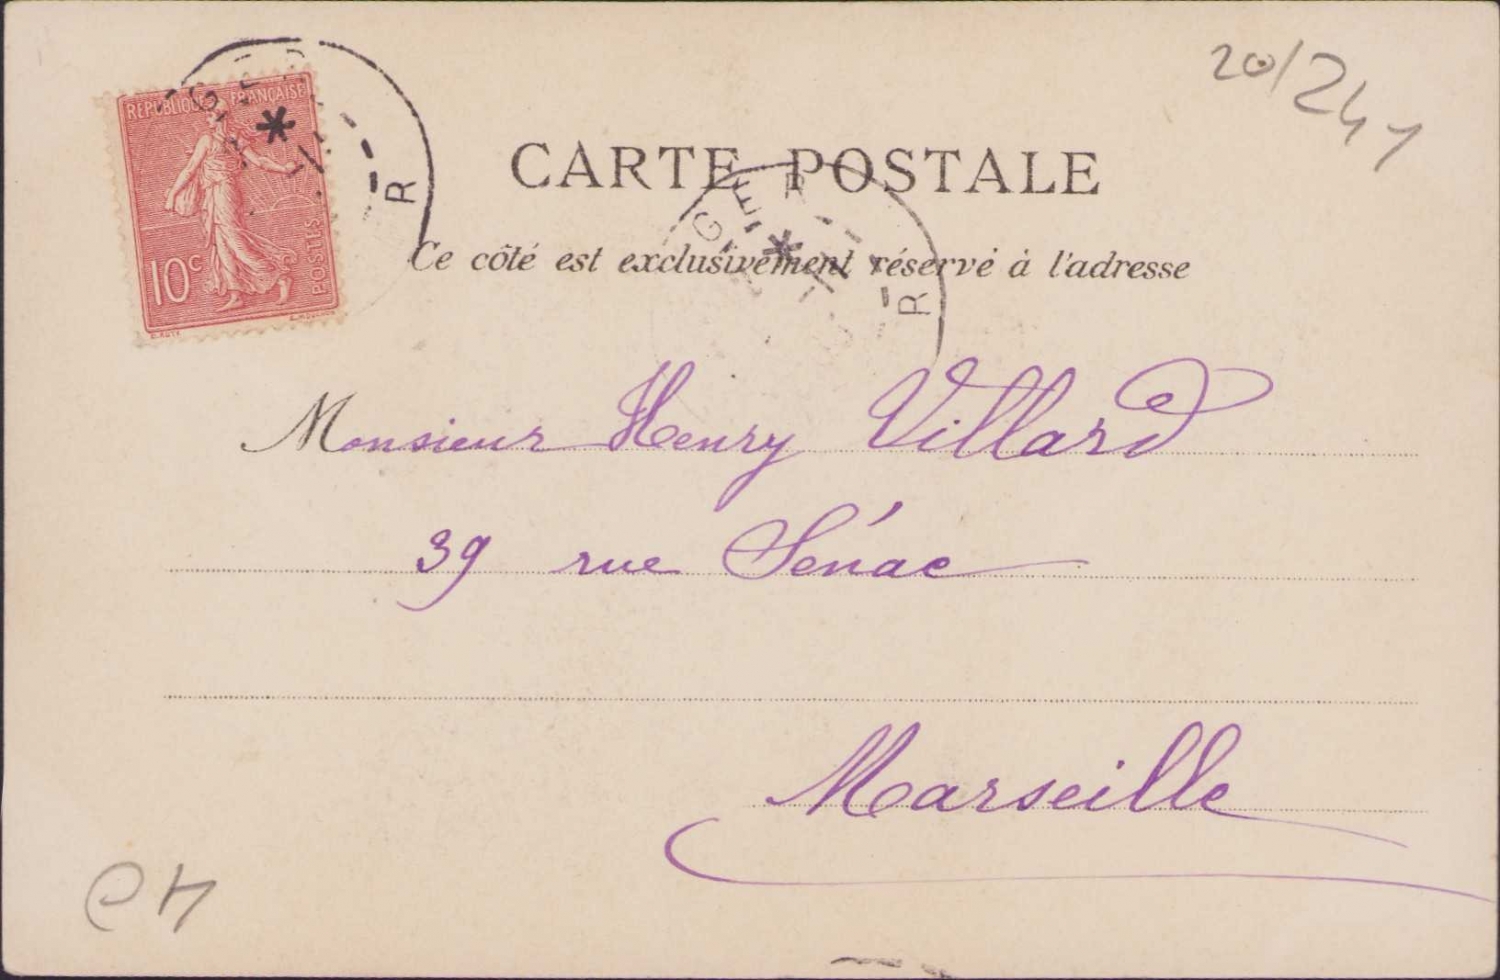 20/241
RÉPUBLIQUE FRANÇAISE
10c
POSTES
CARTE POSTALE
Ce côté est exclusivement réservé à l'adresse
Monsieur Henry Villard
39 rue Sénac
Marseille